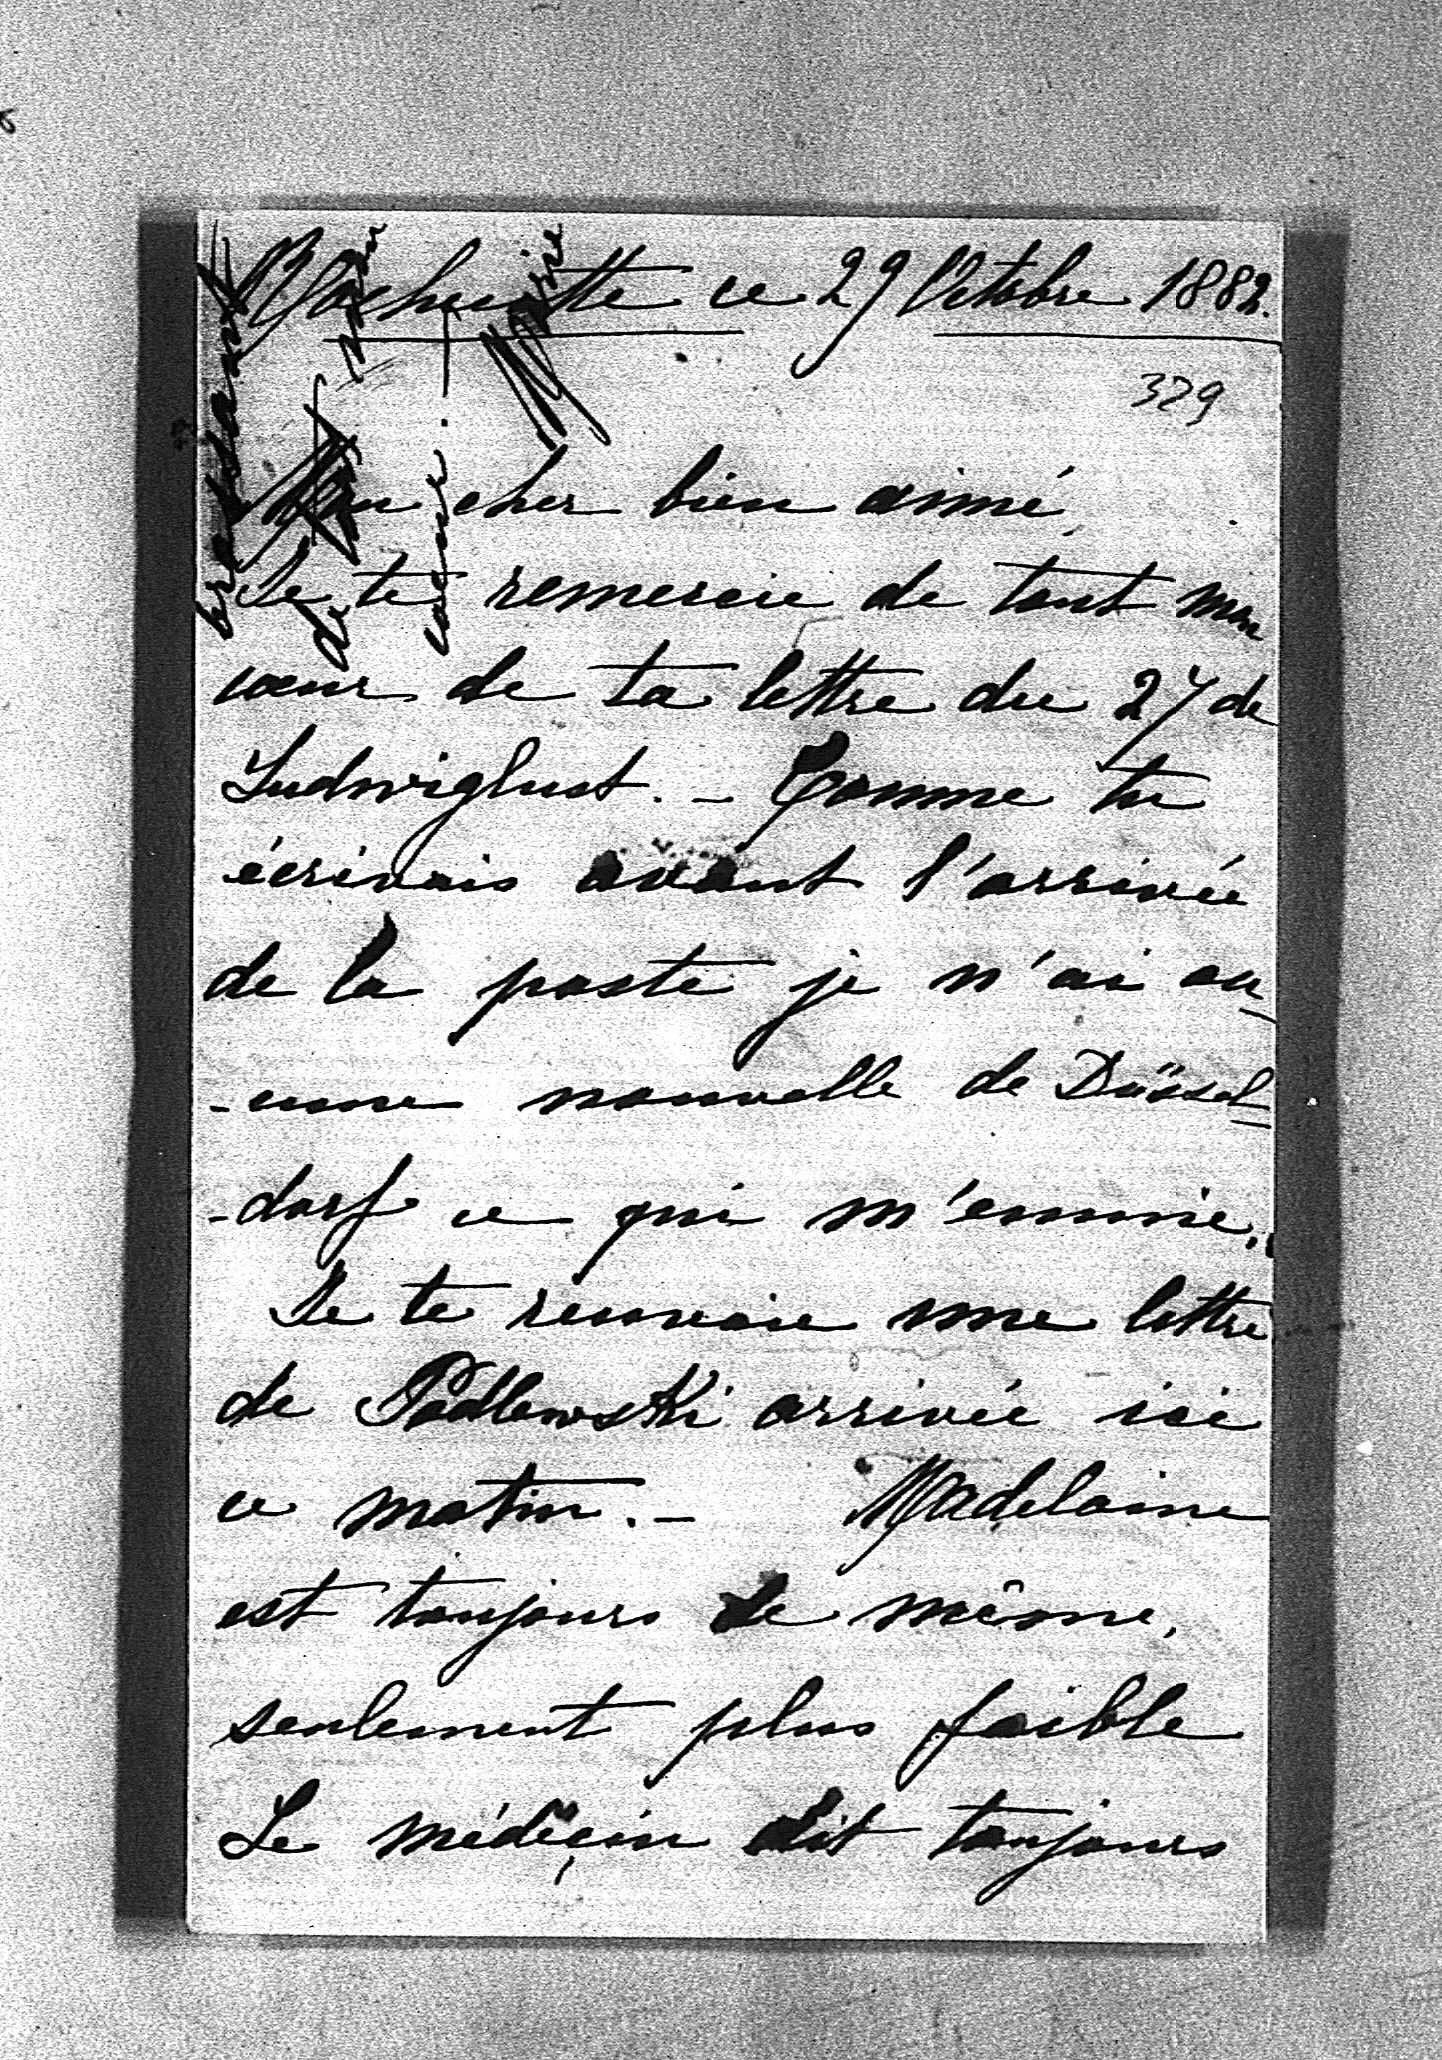 Blachcutte ce 29 Octobre 1882.
329
Mon cher bien aimé
Je te remercie de tout mon
cœur de ta lettre du 27 de
Ludwiglust. - Comme tu
écrivais avant l'arrivée
de la poste je n'ai au
-cune nouvelle de Düssel
-dorf ce qui m'ennuie.
Je te renvoie une lettre
de Podlewski arrivée ici
ce matin. - Madelaine
est toujours de même,
seulement plus faible
Le médeçin dit toujours